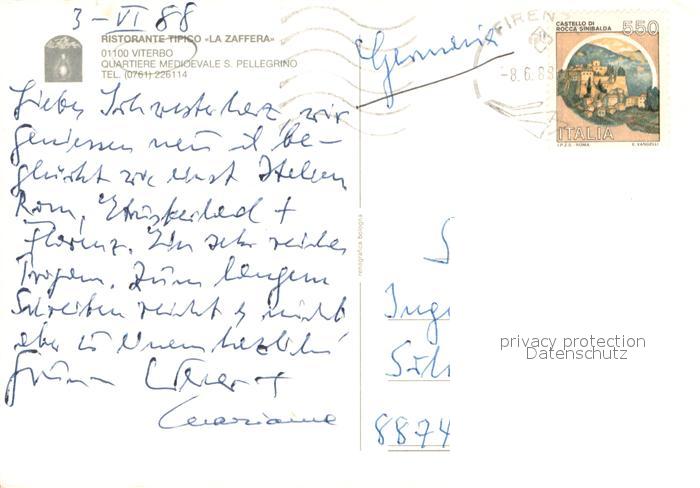 3-VI 88
RISTORANTE TIPICO «LA ZAFFERA»
01100 VITERBO
QUARTIERE MEDIOEVALE S. PELLEGRINO
TEL. (0761) 226114
Liebes Schwesterherz, wir
geniessen neu u. be-
glückt wie einst Italien
Rom, Etruskerland +
Florenz. Ein sehr reiches
Programm. Zum langen
Schreiben reicht es nicht,
aber zu
Grüssen +
Marianne
Germania
FIREN
-8.6.88
CASTELLO DI
ROCCA SINIBALDA
550
ITALIA
I.P.Z.S. - ROMA
E. VANGELLI
renografica Bologna
S
Inge
8874
privacy protection
Datenschutz